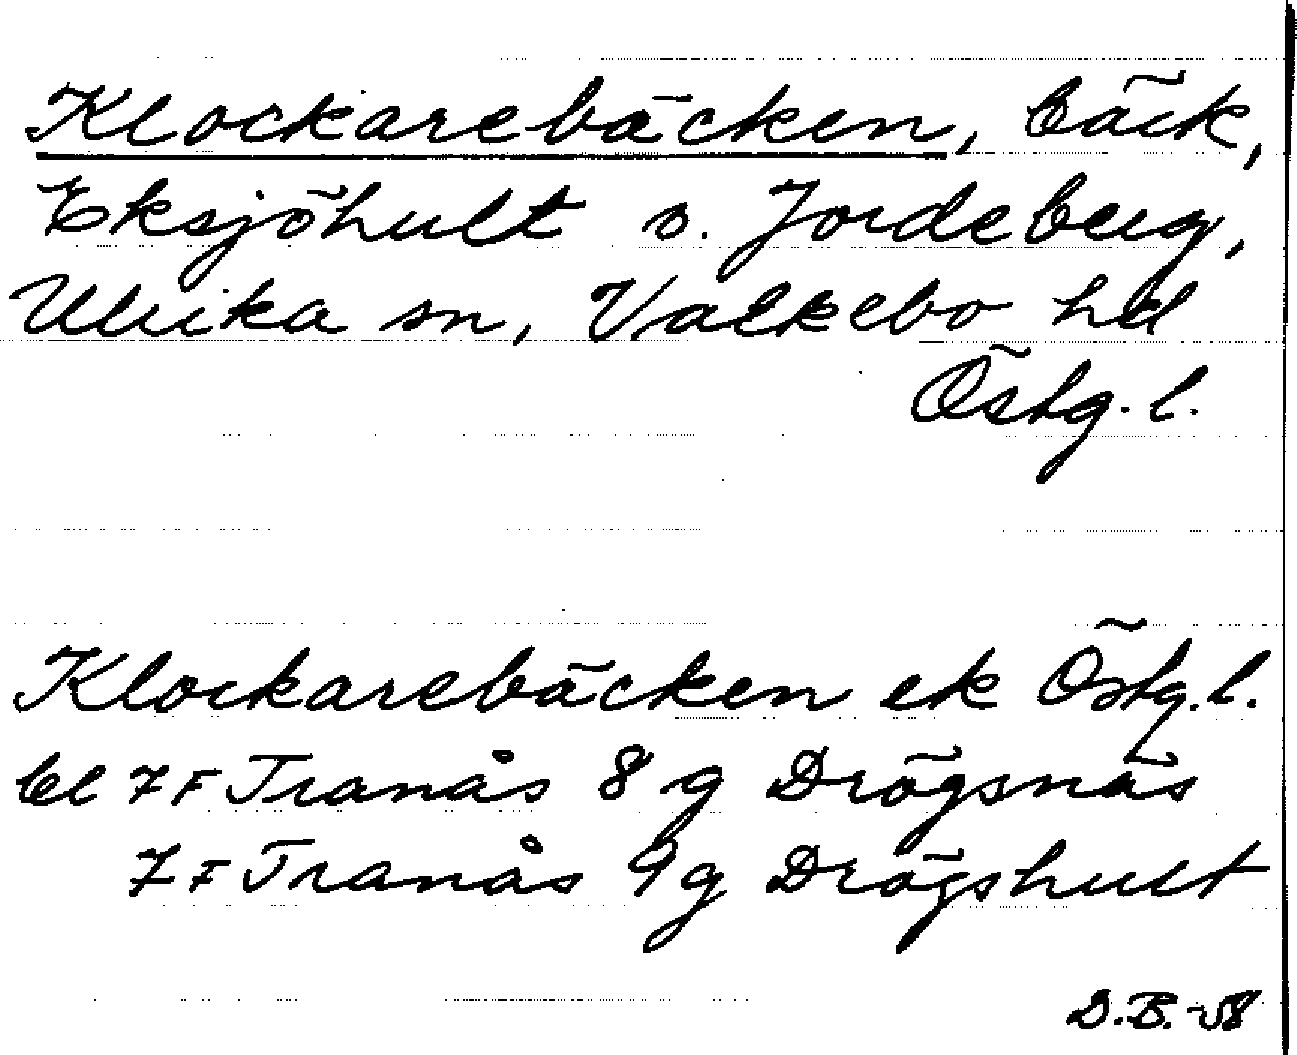 Klockarebäcken, bäck,
Eksjöhult o. Jordeberg,
Ulrika sn, Valkebo hd
Östg. l.
Klockarebäcken ek Östg. l.
bl 7F Tranås 8 g Drögsnäs
7F Tranås 9 g Drögshult
D.B. -58